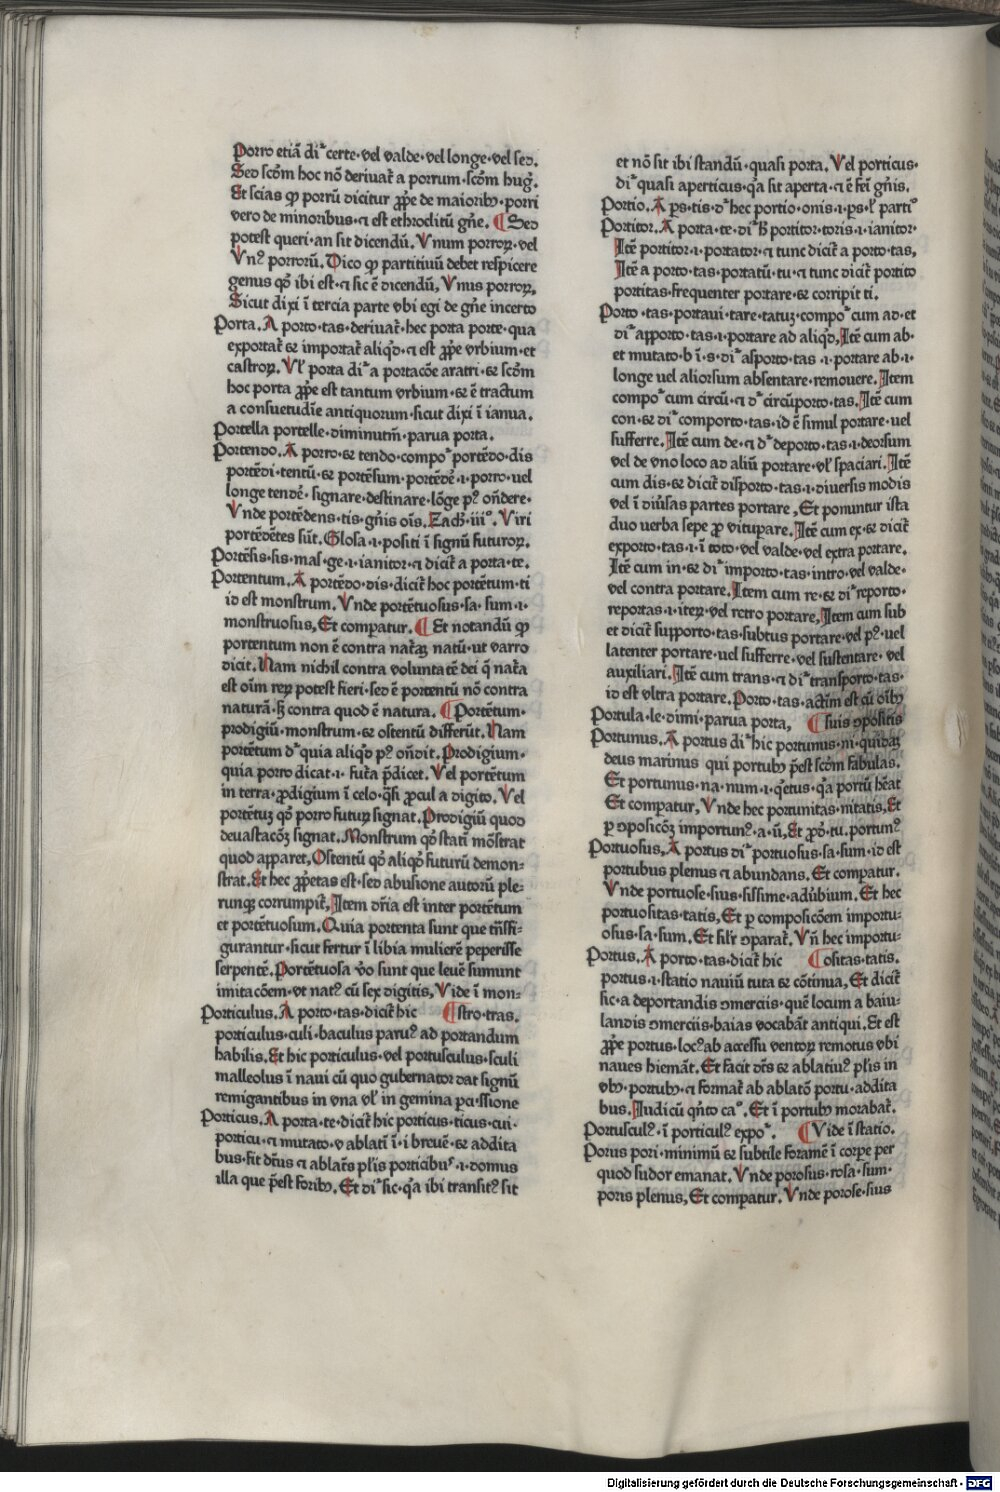 Porro etiā di͛ certe·vel valde·vel longe·vel sed.
Sed scḋm hoc nō deriuaƭ a porrum·scḋm hug̉.
Et scias ꝙ porrū dicitur ꝓpe de maioribꝫ·porri
vero de minoribus·⁊ est ethroditū gn̄e. ¶ Sed
potest queri·an sit dicendū. Vnum porroꝝ·vel
Vnꝰ porrorū. Dico ꝙ partitiuū debet respicere
genus qḋ ibi est·⁊ sic ē dicendū, Vnus porroꝝ.
Sicut dixi ī tercia parte vbi egi de gn̄e incerto
Porta. A porto·tas·deriuaƭ·hec porta porte·qua
exportaƭ ⁊ importaƭ aliqḋ·⁊ est ꝓpe vrbium·et
castroꝝ. Vl̓ porta di͛ a portacōe aratri·⁊ scḋm
hoc porta ꝓpe est tantum vrbium·⁊ ē tractum
a consuetudīe antiquorum·sicut dixi ī ianua.
Portella portelle·diminutm̄·parua porta.
Portendo. A porro·⁊ tendo·compoͬ portēdo·dis
portēdi·tentū·⁊ portēsum·portēdē·i·porro·uel
longe tendē·signare·destinare·lōge pꝰ on̄dere·
Vnde portēdens·tis·gn̄is oīs. Zach·iiiͦ. Viri
portēdētes sūt. Glosa·i·positi ī signū futuroꝝ.
Portēsis·sis·mas̄·ge·i·ianitor·⁊ diciƭ a porta·te.
Portentum. A portēdo·dis·diciƭ hoc portētum·ti
id est monstrum. Vnde portētuosus·sa·sum·i·
monstruosus, Et compatur. ¶ Et notandū ꝙ
portentum non ē contra naƭaꝫ natū·ut varro
dicit. Nam nichil contra voluntatē dei q̄ naƭa
est oīm reꝝ potest fieri·sed ē portentū nō contra
naturā·sꝫ contra quod ē natura. ¶ Portētum·
prodigiū·monstrum·⁊ ostentū differūt. Nam
portētum dͬ quia aliqḋ pꝰ on̄dit. Prodigium·
quia porro dicat·i·fuƭa p̄dicet. Vel portētum
in terra·ꝓdigium ī celo·q̄si ꝓcul a digito. Vel
portētuꝫ qḋ porro futuꝝ signat. Prodigiū quod
deuastacōꝫ signat. Monstrum qḋ statī mōstrat
quod apparet, Ostentū qḋ aliqḋ futurū demon⹀
strat. Et hec ꝓpetas est·sed abusione autorū ple⹀
runqꝫ corrumpiƭ, Item dr̄ia est inter portētum
et portētuosum. Quia portenta sunt que tn̄sfi⹀
gurantur·sicut fertur ī libia mulierē peperisse
serpentē. Portētuosa v̇o sunt que leuē sumunt
imitacōem·vt natꝰ cū sex digitis, Vide ī mon⹀
Porticulus. A porto·tas·diciƭ hic ¶ stro·tras.
porticulus·culi·baculus paruꝰ ad portandum
habilis. Et hic porticulus·vel portusculus·sculi
malleolus ī naui cū quo gubernator dat signū
remigantibus in vna vl̓ in gemina ꝑcussione
Porticus. A porta·te·diciƭ hic porticus·ticus·cui·
porticu·⁊ mutato·v ablatī ī·i breuē·⁊ addita
bus·fit dƭus ⁊ ablaƭs pl̓is porticibuꝰ·i·domus
illa que p̄est foribꝫ. Et di͛ sic·q̄a ibi transitꝰ sit
et nō sit ibi standū·quasi porta. Vel porticus·
di͛ quasi aperticus·q̄a sit aperta·⁊ ē fei̅ gn̄is.
Portio. A ps·tis·dͬ hec portio·onis·i·ps·l̓ partiͦ
Portitor. A porta·te·di͛ ħ portitor·toris·i·ianitor·
Itē portitor·i·portator·⁊ tunc diciƭ a porto·tas,
Itē a porto·tas·portatū·tu·⁊ tunc diciƭ portito
portitas·frequenter portare·⁊ corripit ti.
Porto·tas·portaui·tare·tatuꝫ·compoͬ cum ad·et
di͛ apporto·tas·i·portare ad aliqḋ, Itē cum ab·
et mutato·b ī·s·di͛ asporto·tas·i·portare ab·i·
longe uel aliorsum absentare·remouere. Item
compoͬ cum circū·⁊ dͬ circūporto·tas. Itē cum
con·⁊ di͛ comporto·tas·id ē simul portare·uel
sufferre. Itē cum de·⁊ dͬ deporto·tas·i·deorsum
vel de vno loco ad aliū portare·vl̓ spaciari. Itē
cum dis·⁊ diciƭ disporto·tas·i·diuersis modis
vel ī diu̇sas partes portare, Et ponuntur ista
duo uerba sepe ꝓ vitupare. Itē cum ex·⁊ diciƭ
exporto·tas·i·ī toto·vel valde·vel extra portare.
Itē cum in·⁊ di͛ importo·tas·intro·vel valde·
vel contra portare. Item cum re·⁊ di͛ reporto·
reportas·i·iteꝝ·vel retro portare, Item cum sub
et diciƭ supporto·tas·subtus portare·vel pꝰ·uel
latenter portare·uel sufferre·vel sustentare·vel
auxiliari. Itē cum trans·⁊ di͛ transporto·tas·
id est vltra portare. Porto·tas·actīm est cū oībꝫ
Portula·le·dimi·parua porta, ¶ suis ꝯpositis
Portunus. A portus di͛ hic portunus·ni·quidaꝫ
deus marinus qui portubꝫ p̄est scḋm fabulas.
Et portunus·na·num·i·q̇etus·q̄a portū hēat
Et compatur, Vnde hec portunitas·nitatis, Et
ꝑ ꝯposicōꝫ importunꝰ·a·ū, Et ꝓoͦ·tu·portunꝰ
Portuosus, A portus di͛ portuosus·sa·sum·id est
portubus plenus ⁊ abundans. Et compatur.
Vnde portuose·sius·sissime·adu̇bium. Et hec
portuositas·tatis, Et ꝑ composicōem importu⹀
osus·sa·sum. Et sil̓r ꝯparaƭ. Vn̄ hec importu⹀
Portus. A porto·tas·diciƭ hic ¶ ositas·tatis.
portus·i·statio nauiū tuta ⁊ cōtinua, Et diciƭ
sic·a deportandis ꝯmerciis·quē locum a baiu⹀
landis ꝯmerciis·baias vocabāt antiqui. Et est
ꝓpe portus·locꝰ ab accessu ventoꝝ remotus vbi
naues hiemāt. Et facit dƭs ⁊ ablatiuꝰ pl̓is in
vbꝫ·portubꝫ·⁊ formaƭ ab ablatō portu·addita
bus. Iudicū qn̄to caͦ. Et ī portubꝫ morabaƭ.
Portusculꝰ·ī porticulꝰ expoͬ. ¶ Vide ī statio.
Porus pori·minimū ⁊ subtile foramē ī corpe per
quod sudor emanat. Vnde porosus·rosa·sum·
poris plenus, Et compatur. Vnde porose·sius
Digitalisierung gefördert durch die Deutsche Forschungsgemeinschaft - DFG